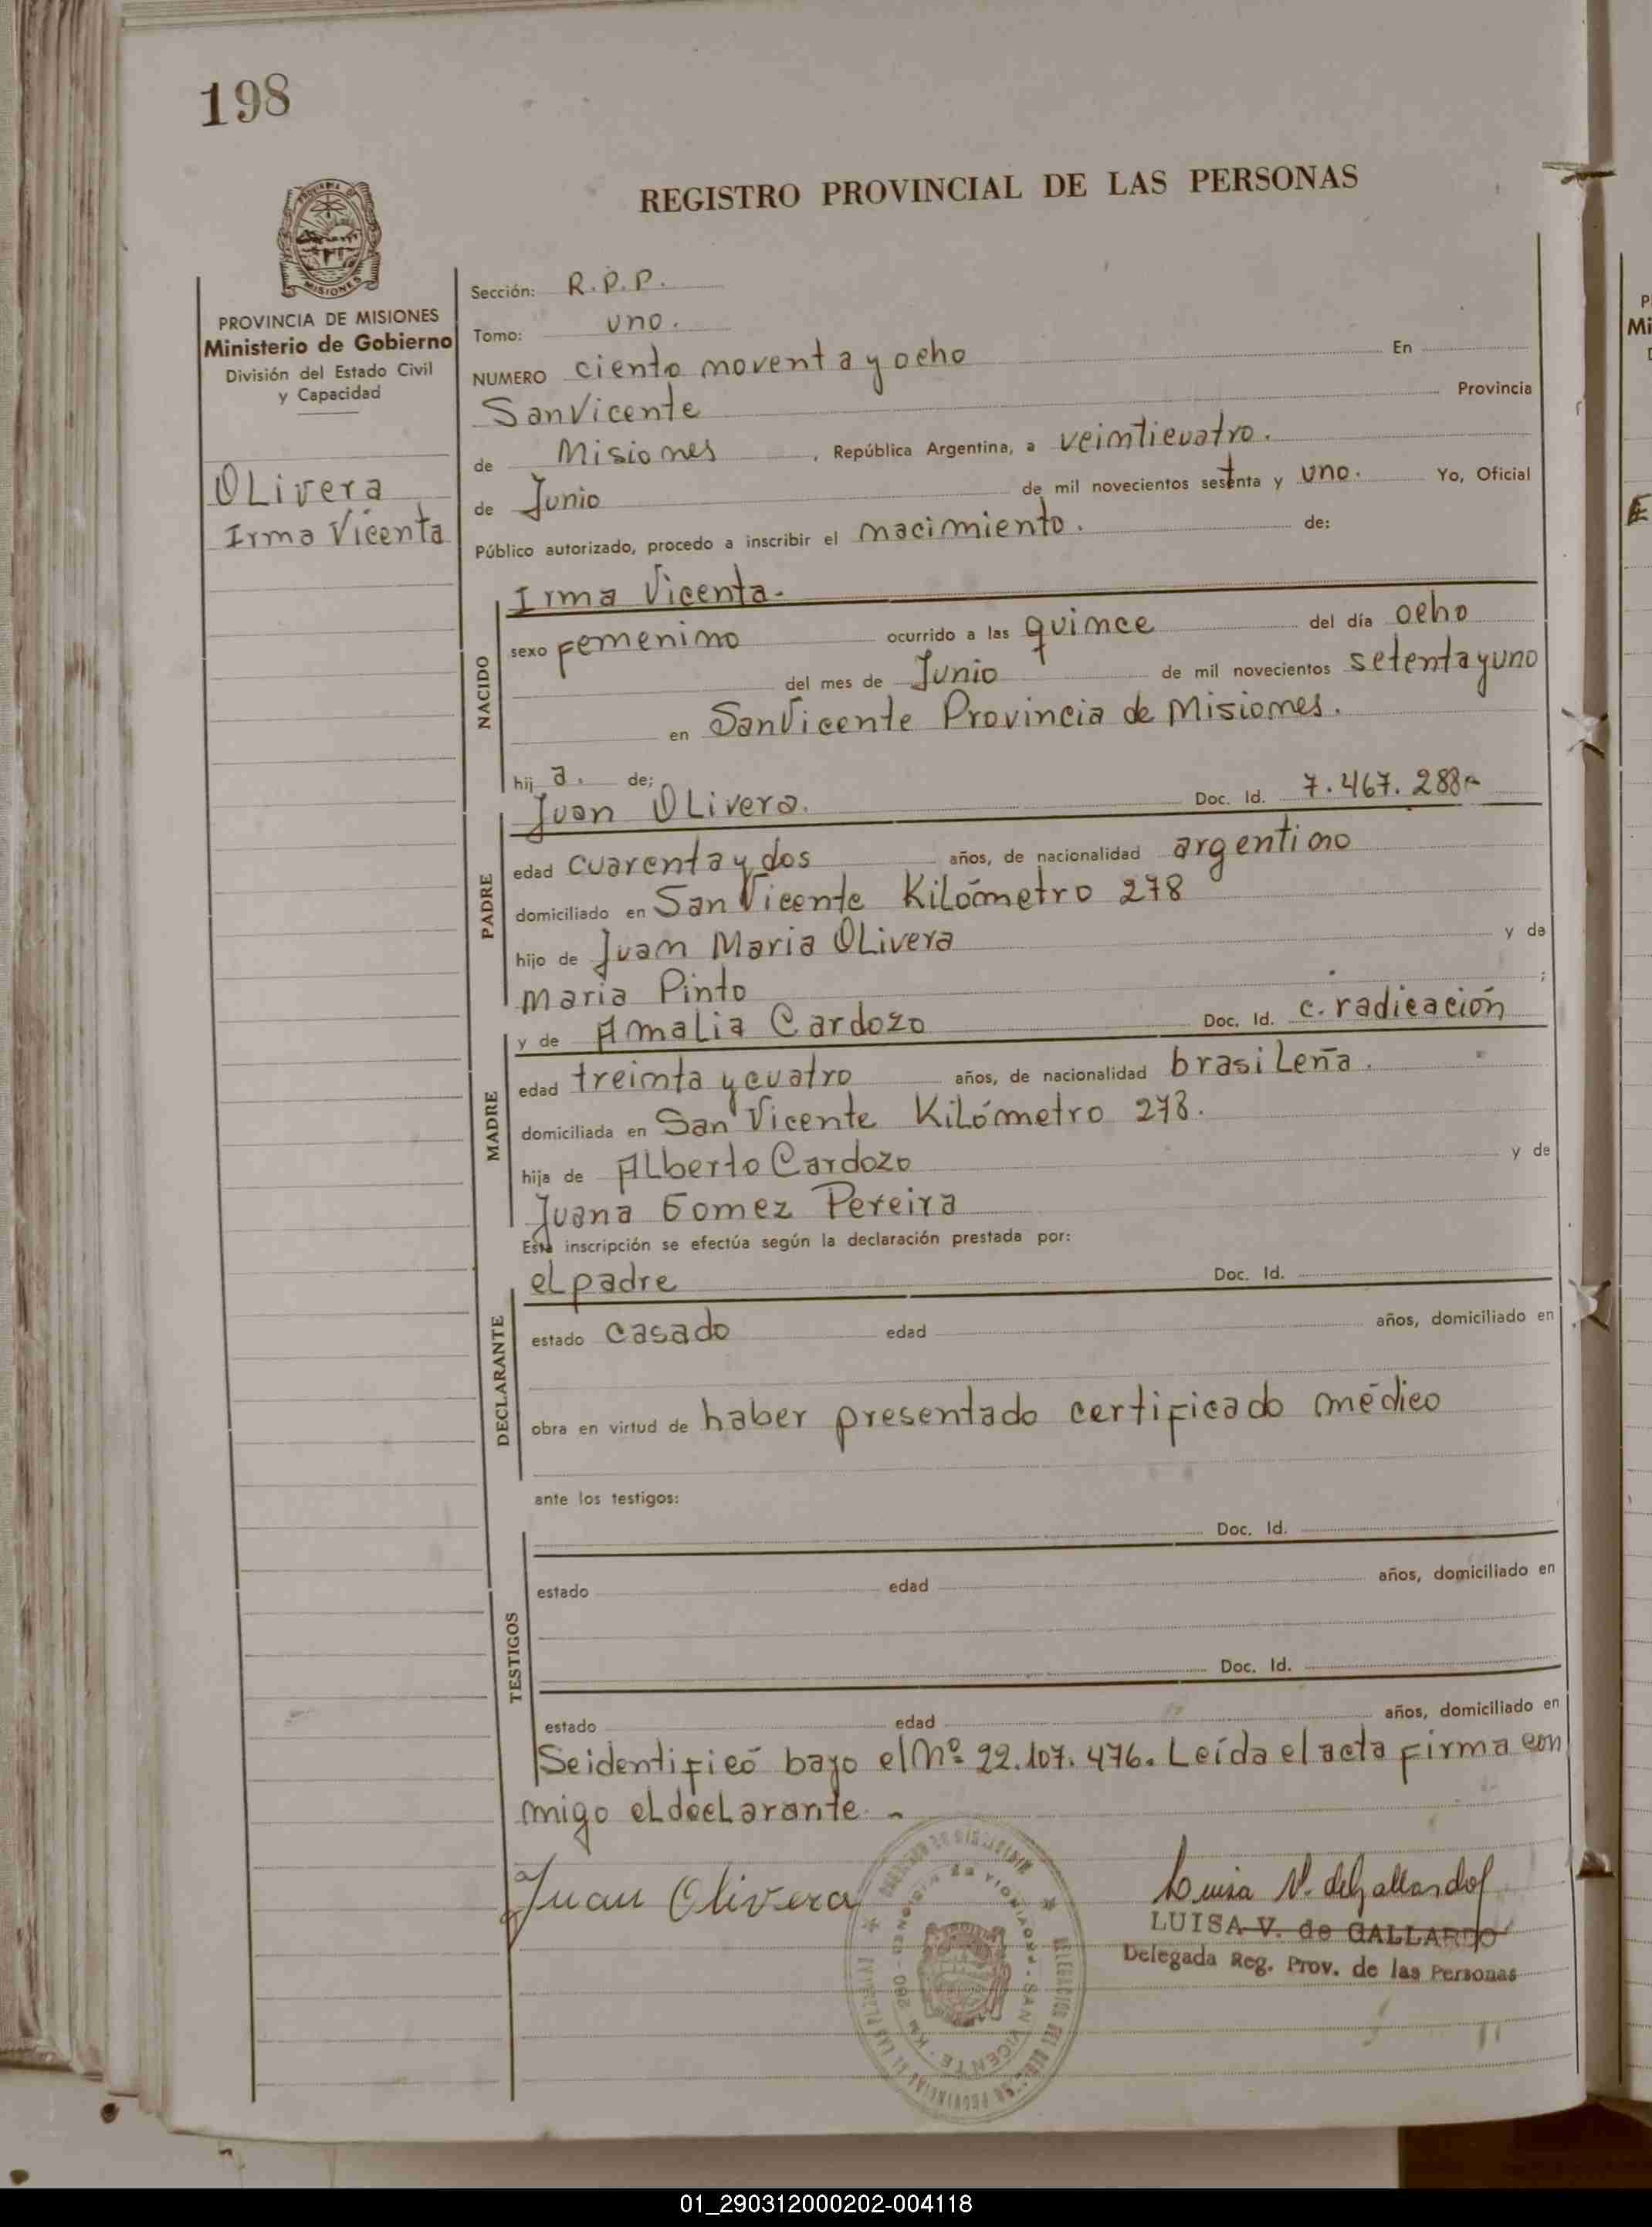 198
REGISTRO PROVINCIAL DE LAS PERSONAS
MISIONES
PROVINCIA DE MISIONES
Ministerio de Gobierno
División del Estado Civil
y Capacidad
OLivera
Irma Vicenta
Sección: R.P.P.
Tomo: uno.
NUMERO ciento noventa y ocho En
San Vicente Provincia
de Misiones, República Argentina, a veinticuatro.
de Junio de mil novecientos setenta y uno. Yo, Oficial
Público autorizado, procedo a inscribir el nacimiento. de:
NACIDO
Irma Vicenta.
sexo femenino ocurrido a las quince del día ocho
del mes de Junio de mil novecientos setenta y uno
en San Vicente Provincia de Misiones.
hij a. de;
PADRE
Juan OLivera. Doc. Id. 7.467.288
edad cuarenta y dos años, de nacionalidad argentino
domiciliado en San Vicente Kilómetro 278
hijo de Juan Maria OLivera y de
Maria Pinto ;
MADRE
y de Amalia Cardozo Doc. Id. c. radicación
edad treinta y cuatro años, de nacionalidad brasileña.
domiciliada en San Vicente Kilómetro 278.
hija de Alberto Cardozo y de
Juana Gomez Pereira
Esta inscripción se efectúa según la declaración prestada por:
DECLARANTE
el padre Doc. Id.
estado casado edad años, domiciliado en
obra en virtud de haber presentado certificado médico
ante los testigos:
TESTIGOS
Doc. Id.
estado edad años, domiciliado en
Doc. Id.
estado edad años, domiciliado en
Se identificó bajo el Nº 22.107.476. Leída el acta firma con
migo el declarante.
Juan Olivera
Luisa V. de Gallardo
LUISA V. de GALLARDO
Delegada Reg. Prov. de las Personas
SAN VICENTE
01_290312000202-004118